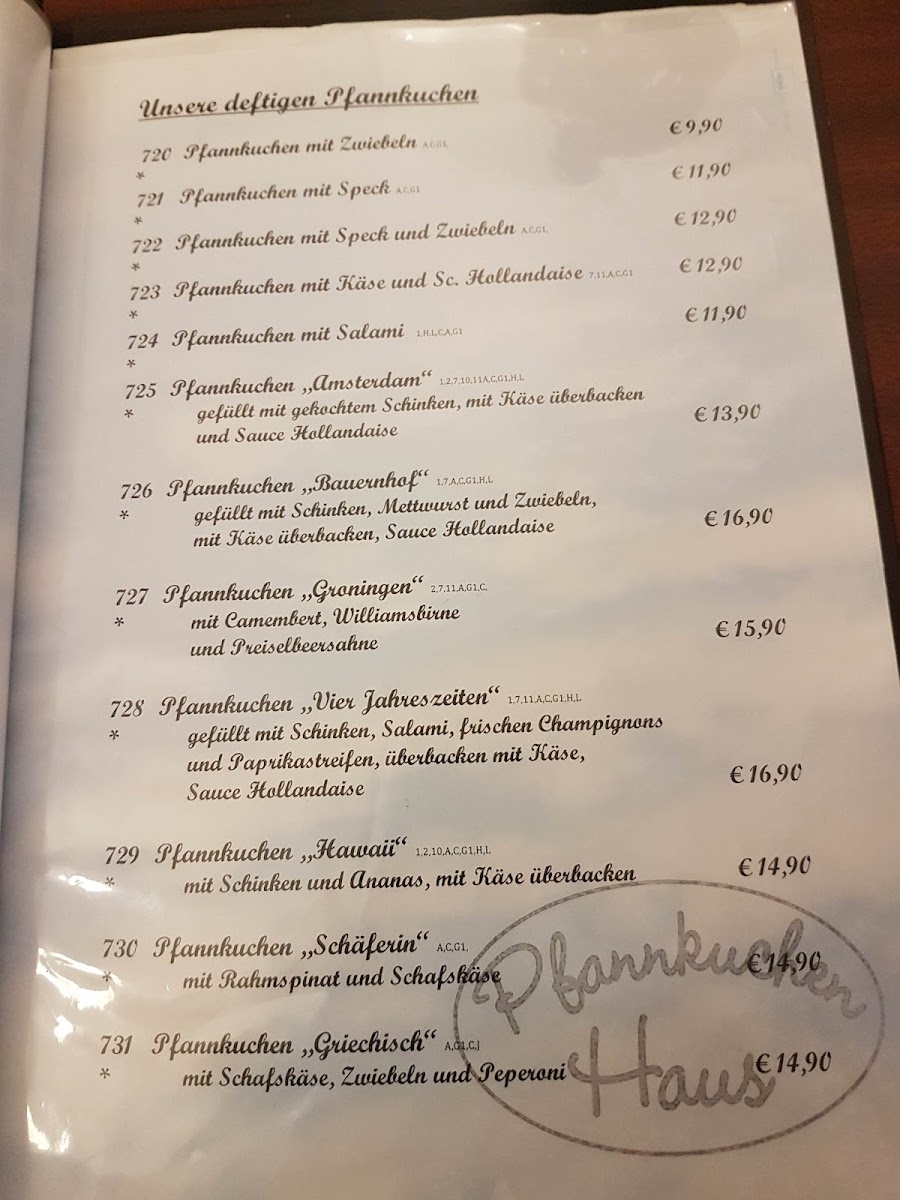 Unsere deftigen Pfannkuchen
720 Pfannkuchen mit Zwiebeln A,C,G1, € 9,90
*
721 Pfannkuchen mit Speck A,C,G1 € 11,90
*
722 Pfannkuchen mit Speck und Zwiebeln A,C,G1, € 12,90
*
723 Pfannkuchen mit Käse und Sc. Hollandaise 7,11,A,C,G1 € 12,90
*
724 Pfannkuchen mit Salami 1,H,L,C,A,G1 € 11,90
*
725 Pfannkuchen „Amsterdam“ 1,2,7,10,11A,C,G1,H,L
* gefüllt mit gekochtem Schinken, mit Käse überbacken
und Sauce Hollandaise € 13,90
726 Pfannkuchen „Bauernhof“ 1,7,A,C,G1,H,L
* gefüllt mit Schinken, Mettwurst und Zwiebeln,
mit Käse überbacken, Sauce Hollandaise € 16,90
727 Pfannkuchen „Groningen“ 2,7,11,A,G1,C,
* mit Camembert, Williamsbirne
und Preiselbeersahne € 15,90
728 Pfannkuchen „Vier Jahreszeiten“ 1,7,11,A,C,G1,H,L
* gefüllt mit Schinken, Salami, frischen Champignons
und Paprikastreifen, überbacken mit Käse,
Sauce Hollandaise € 16,90
729 Pfannkuchen „Hawaii“ 1,2,10,A,C,G1,H,L
* mit Schinken und Ananas, mit Käse überbacken € 14,90
730 Pfannkuchen „Schäferin“ A,C,G1,
* mit Rahmspinat und Schafskäse € 14,90
731 Pfannkuchen „Griechisch“ A,G1,C,J
* mit Schafskäse, Zwiebeln und Peperoni € 14,90
Pfannkuchen
Haus